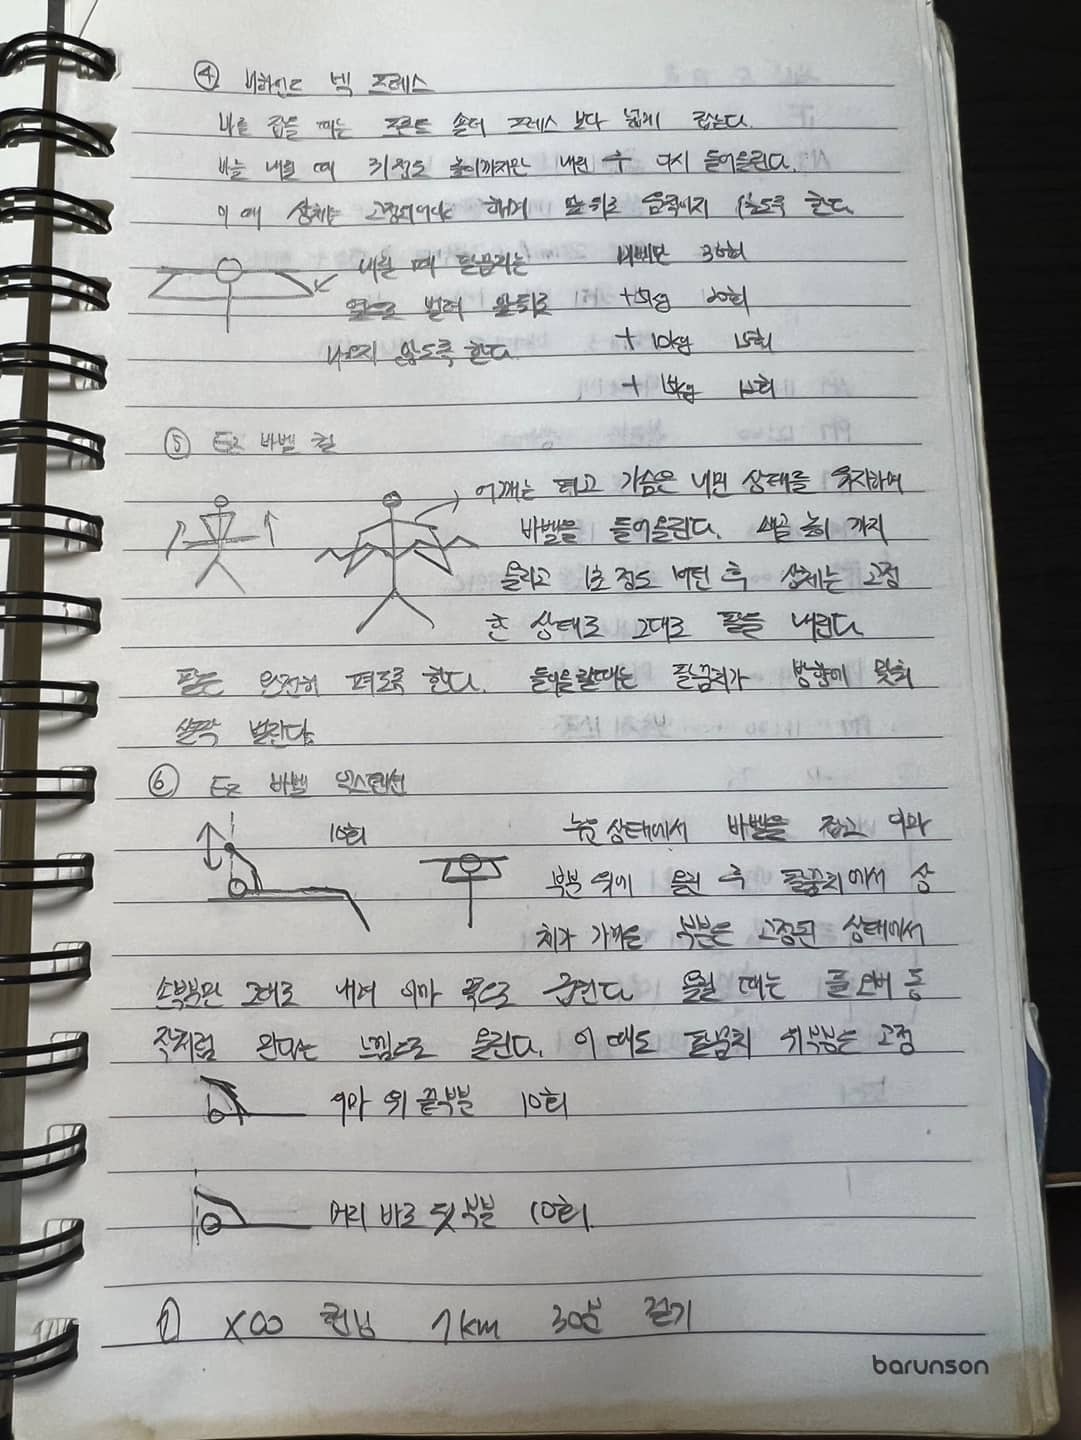 ④ 비하인드 넥 프레스
바를 잡을 때는 프론트 숄더 프레스 보다 넓게 잡는다.
바를 내릴 때 귀 정도 높이까지만 내린 후 다시 들어올린다.
이 때 상체는 고정되어있다 앞뒤로 움직이지 않도록 한다.
내릴 때 팔꿈치는
바벨만 30회
옆으로 벌려 앞뒤로
+5kg 20회
나오지 않도록 한다.
+10kg 15회
+15kg 12회
⑤ EZ 바벨 컬
어깨는 펴고 가슴은 내민 상태를 유지하여
바벨을 들어올린다. 쇄골 높이 까지
올리고 1초 정도 버틴 후 상체는 고정
한 상태로 그대로 팔을 내린다.
팔은 완전히 펴도록 한다. 들어올릴때는 팔꿈치가 방향에 맞춰
살짝 벌린다.
⑥ EZ 바벨 익스텐션
10회
누운 상태에서 바벨을 잡고 이마
부분 위에 올린 후 팔꿈치에서 상
체가 가까운 부분은 고정된 상태에서
손부분만 그대로 내려 이마 쪽으로 굽힌다. 올릴 때는 풀오버 동
작처럼 완다는 느낌으로 올린다. 이 때도 팔꿈치 윗부분은 고정
이마 위 끝부분 10회
머리 바로 뒷 부분 10회.
⑦ X60 런닝 1km 30분 걷기
barunson